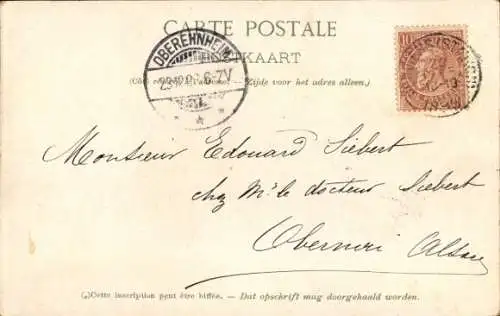 CARTE POSTALE
POSTKAART
Zijde voor het adres alleen.)
OBEREHNHEIM
6-7V
10
Monsieur Edouard Siebert
chez Mr le docteur Siebert
Obernai Alsace
Cette inscription peut être biffée. — Dat opschrift mag doorgehaald worden.